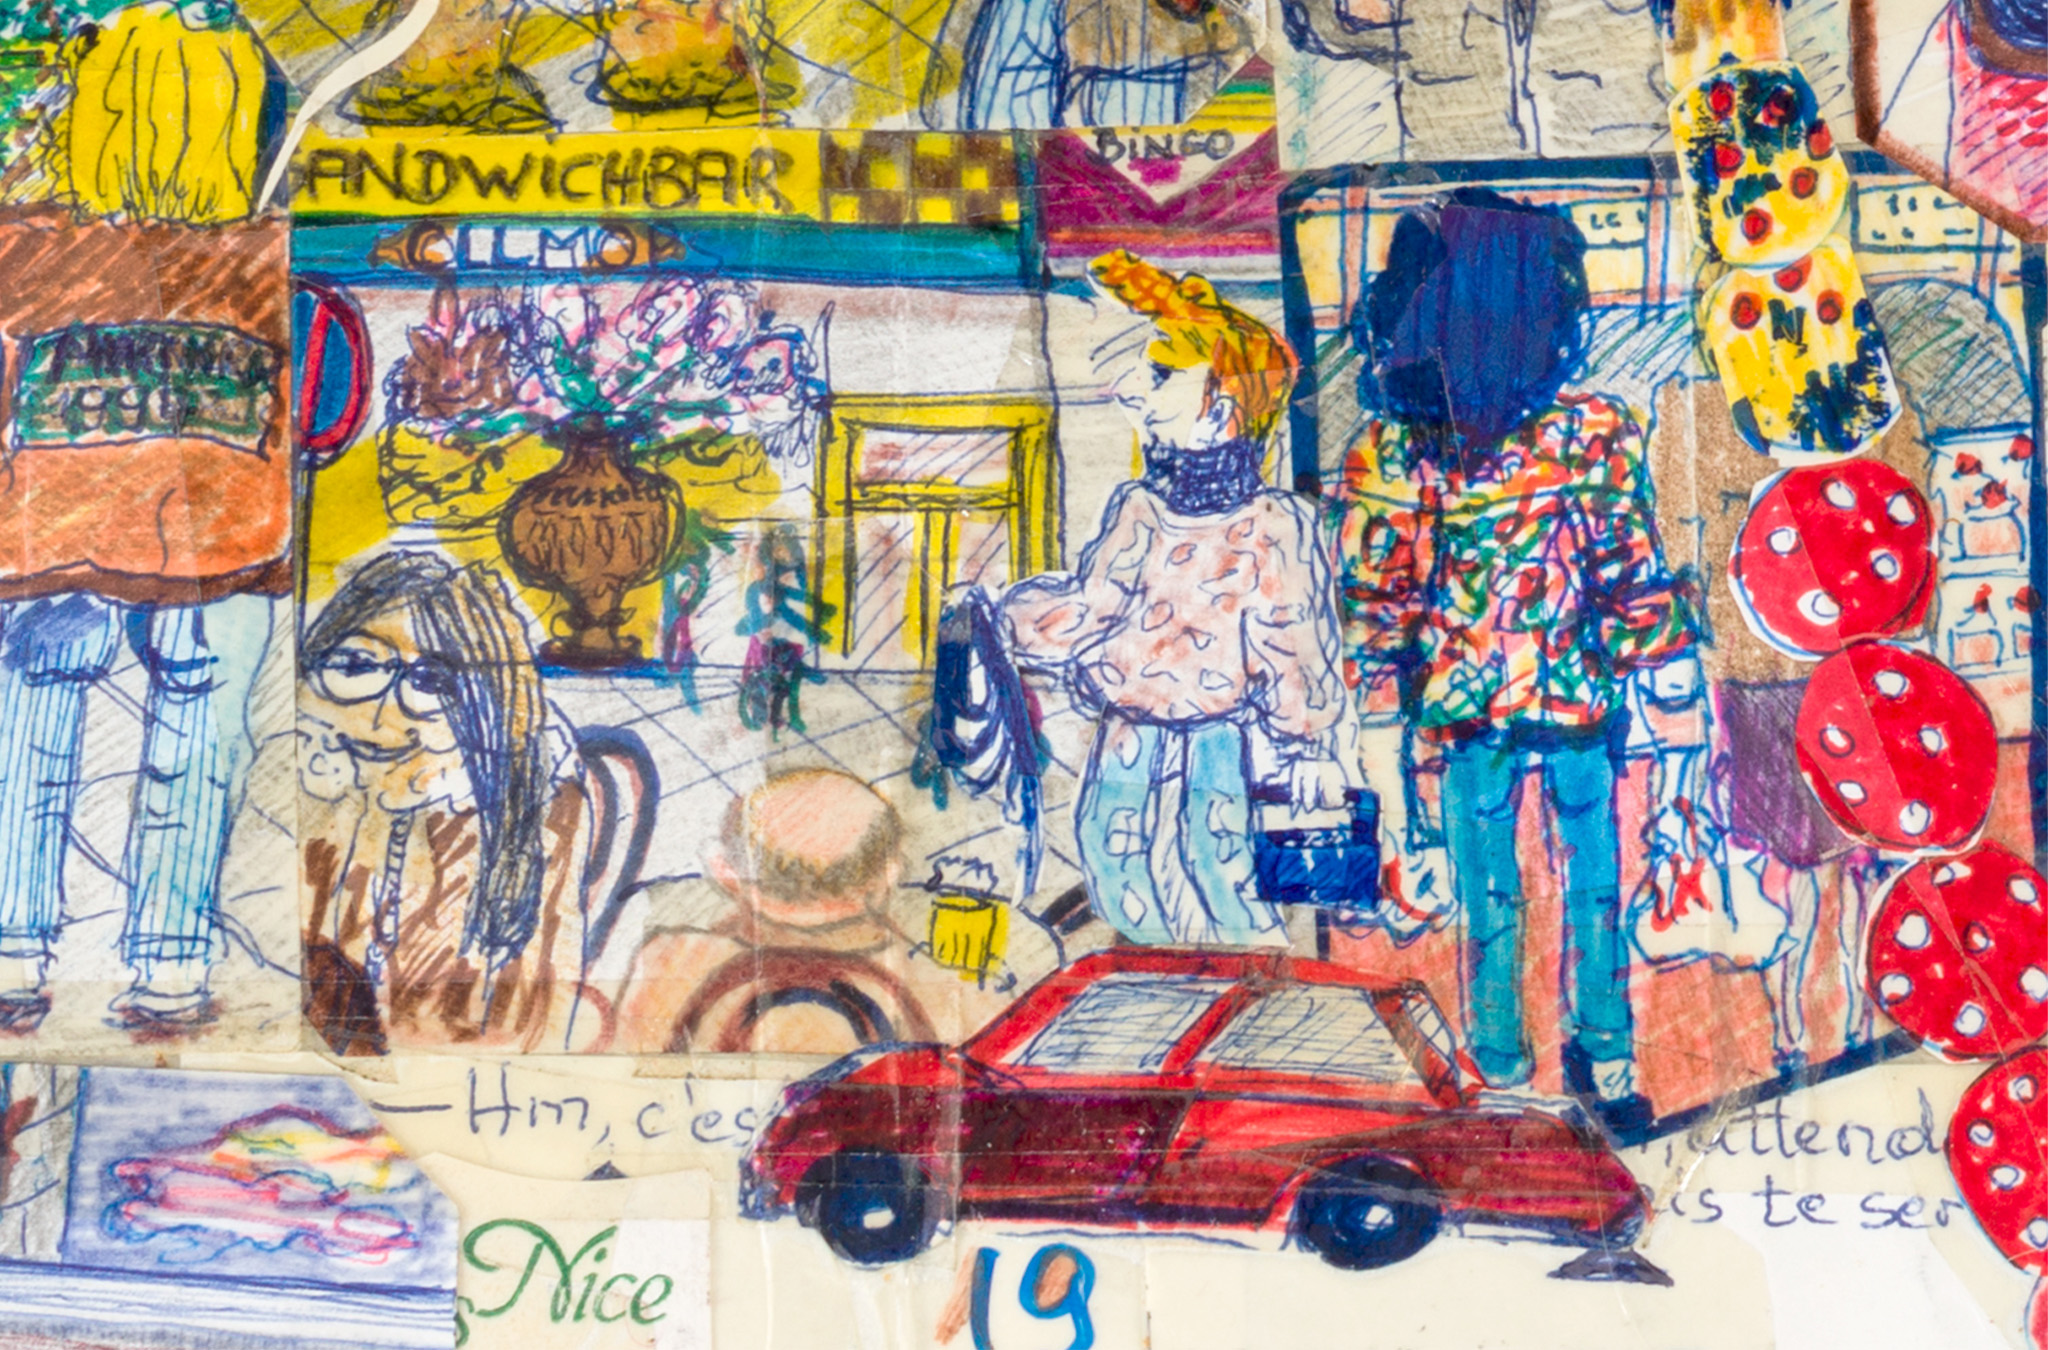 SANDWICHBAR
BINGO
OLLMO
199
— Hm, c'es
attend
is te ser
Nice
19